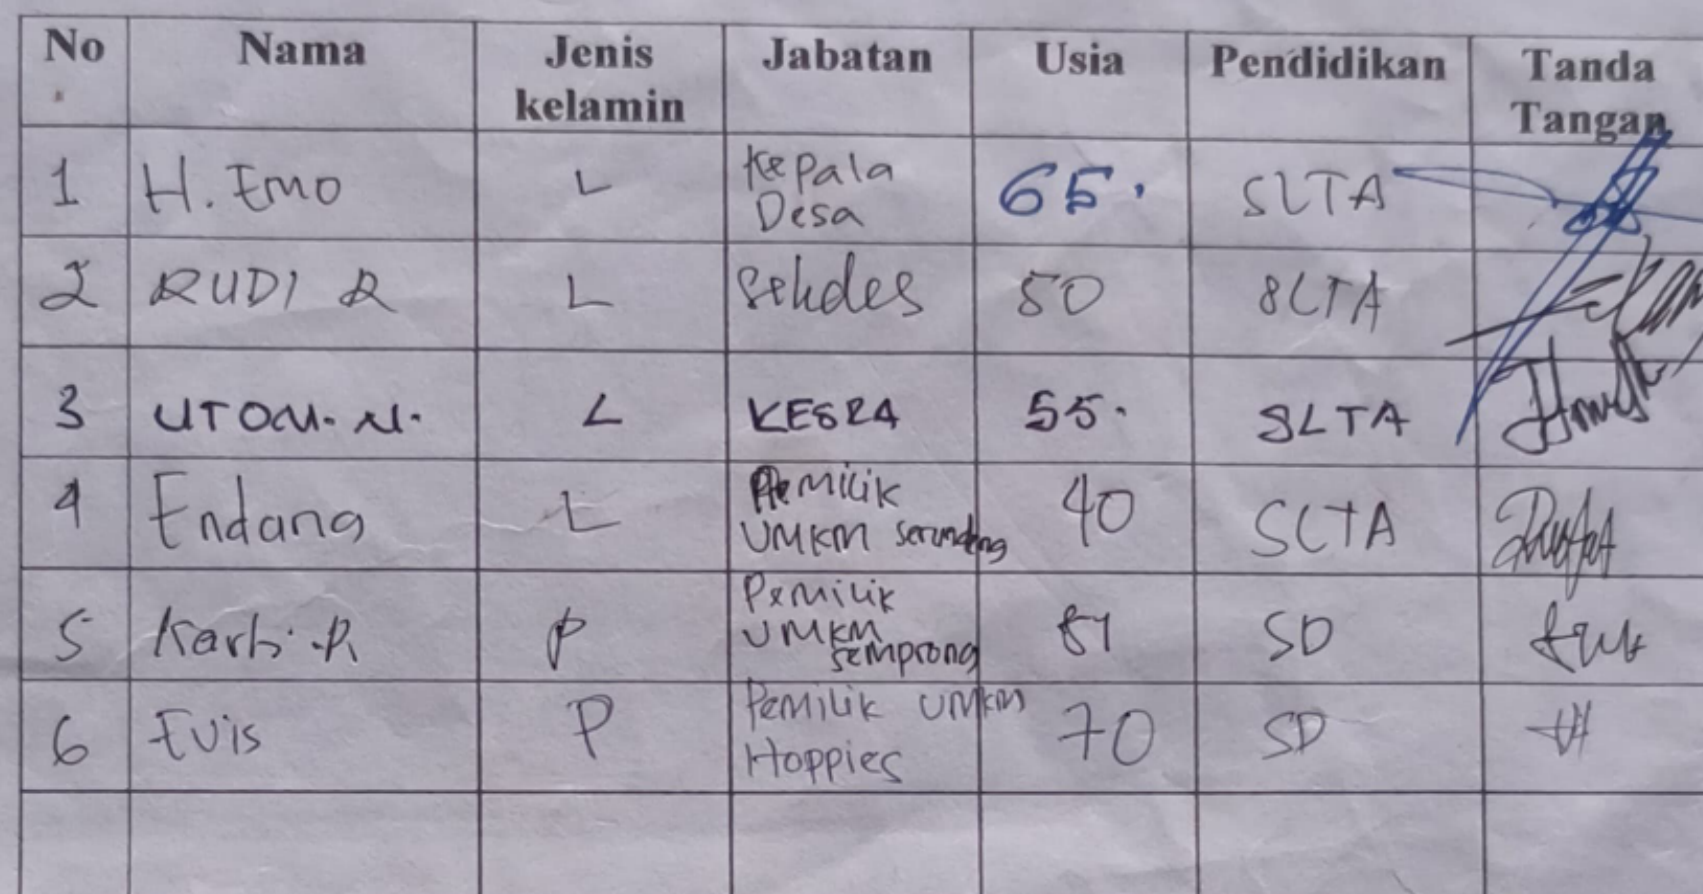 No Nama Jenis kelamin Jabatan Usia Pendidikan Tanda Tangan
1 H. Emo L Kepala Desa 65. SLTA
2 RUDI R L Sekdes 50 SLTA
3 UTOM. N. L KESRA 55. SLTA
4 Endang L Pemilik UMKM serundeng 40 SLTA
5 P Pemilik UMKM semprong SD
6 Evis P Pemilik UMKM Hoppies 70 SD